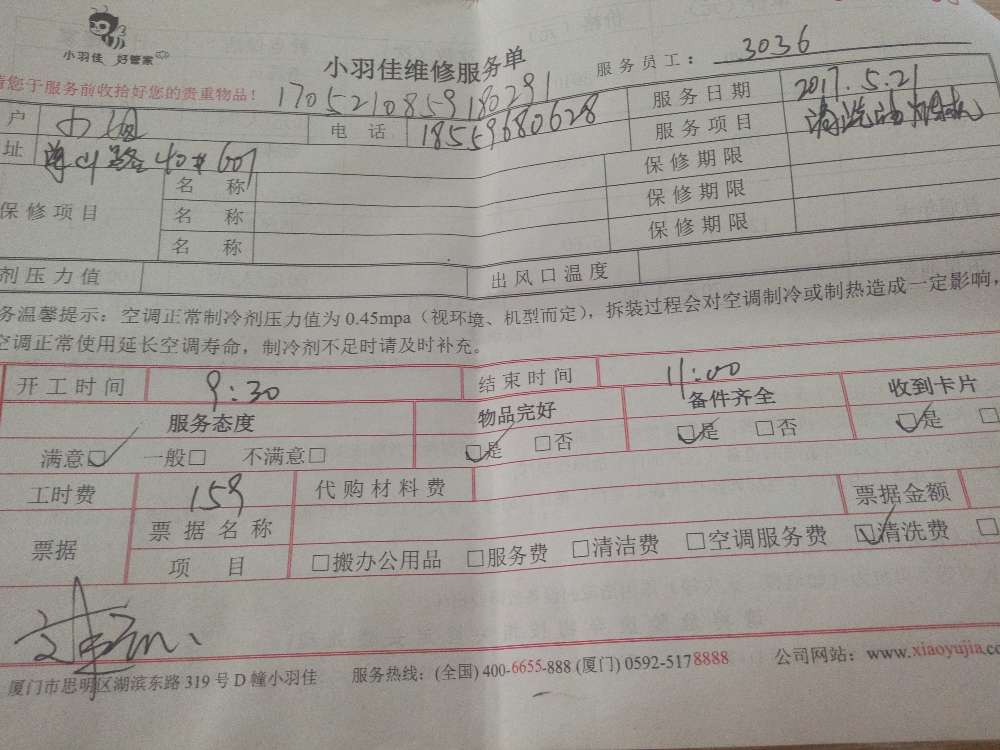 小羽佳 好管家
小羽佳维修服务单
服务员工： 3036
请您于服务前收拾好您的贵重物品！
1705210859180291
户 电 话 18559680628 服务日期 2017.5.21
服务项目 清洗油烟机
址 路40# 607 保修期限
保修项目 名 称 保修期限
名 称 保修期限
名 称
剂压力值 出风口温度
务温馨提示：空调正常制冷剂压力值为 0.45mpa（视环境、机型而定），拆装过程会对空调制冷或制热造成一定影响，
空调正常使用延长空调寿命，制冷剂不足时请及时补充。
开工时间 9:30 结束时间 11:00
服务态度 物品完好 备件齐全 收到卡片
满意□ 一般□ 不满意□ □是 □否 □是 □否 □是 □
工时费 159 代购材料费 票据金额
票据 票据名称
项 目 □搬办公用品 □服务费 □清洁费 □空调服务费 □清洗费 □
厦门市思明区湖滨东路 319 号 D 幢小羽佳 服务热线：(全国) 400-6655-888 (厦门) 0592-5178888 公司网站：www.xiaoyujia.co